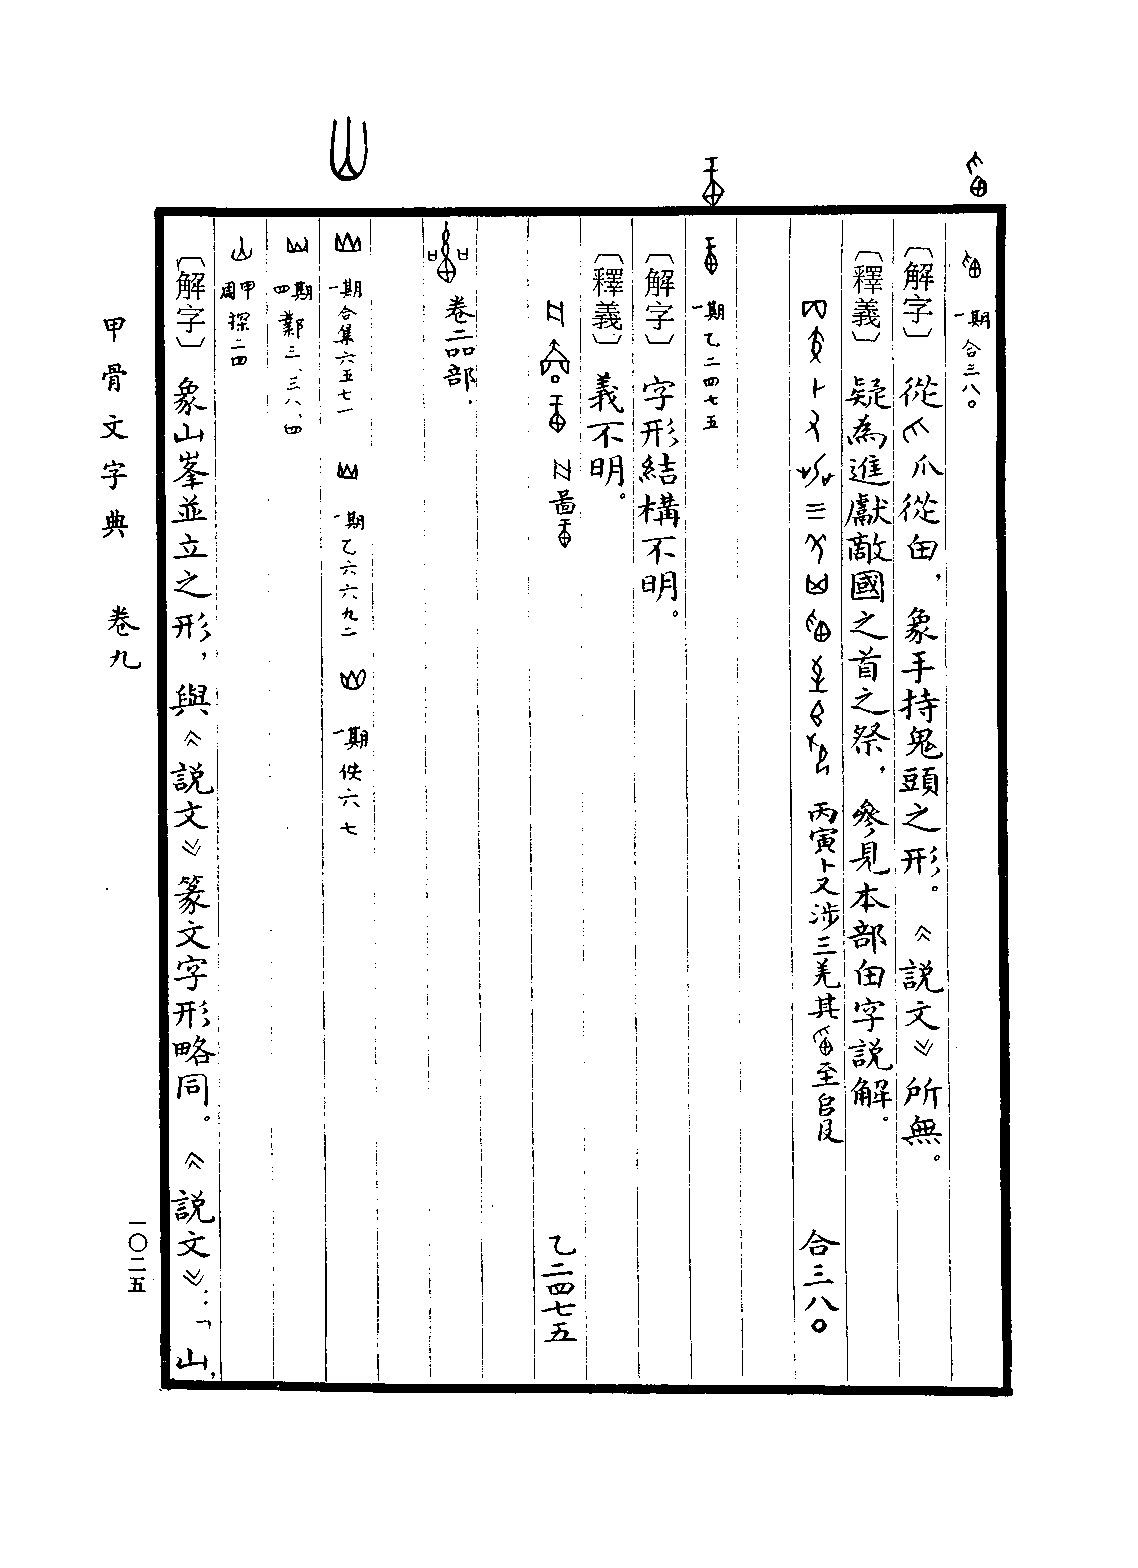 一期 合三八〇
〔解字〕 從爪從甶，象手持鬼頭之形。《說文》所無。
〔釋義〕 疑為進獻敵國之首之祭，參見本部甶字說解。
丙寅卜又涉三羌其至𠂤㞋 合三八〇
一期 乙二四七五
〔解字〕 字形結構不明。
〔釋義〕 義不明。
乙二四七五
卷二品部.
山
一期 合集六五七一 一期 乙六六九二 一期 佚六七
四期 鄴三、三八、四
周甲 探二四
〔解字〕 象山峯並立之形，與《說文》篆文字形略同。《說文》：「山，
甲骨文字典 卷九
一〇二五